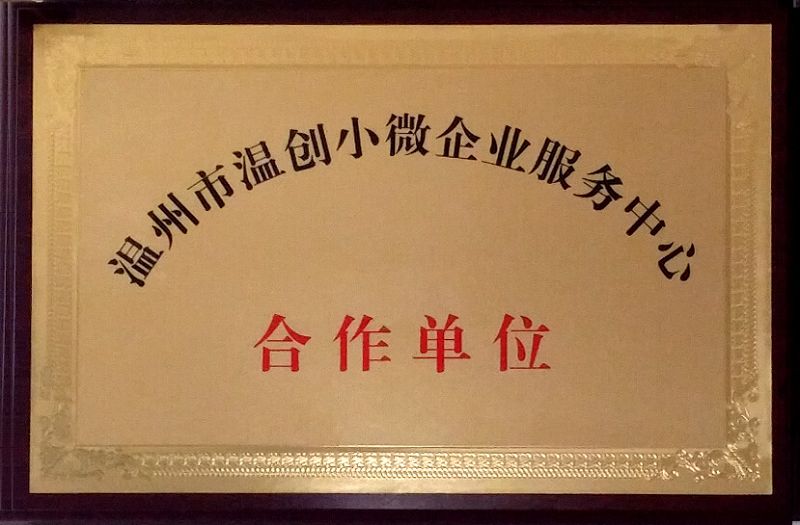 温州市温创小微企业服务中心
合作单位